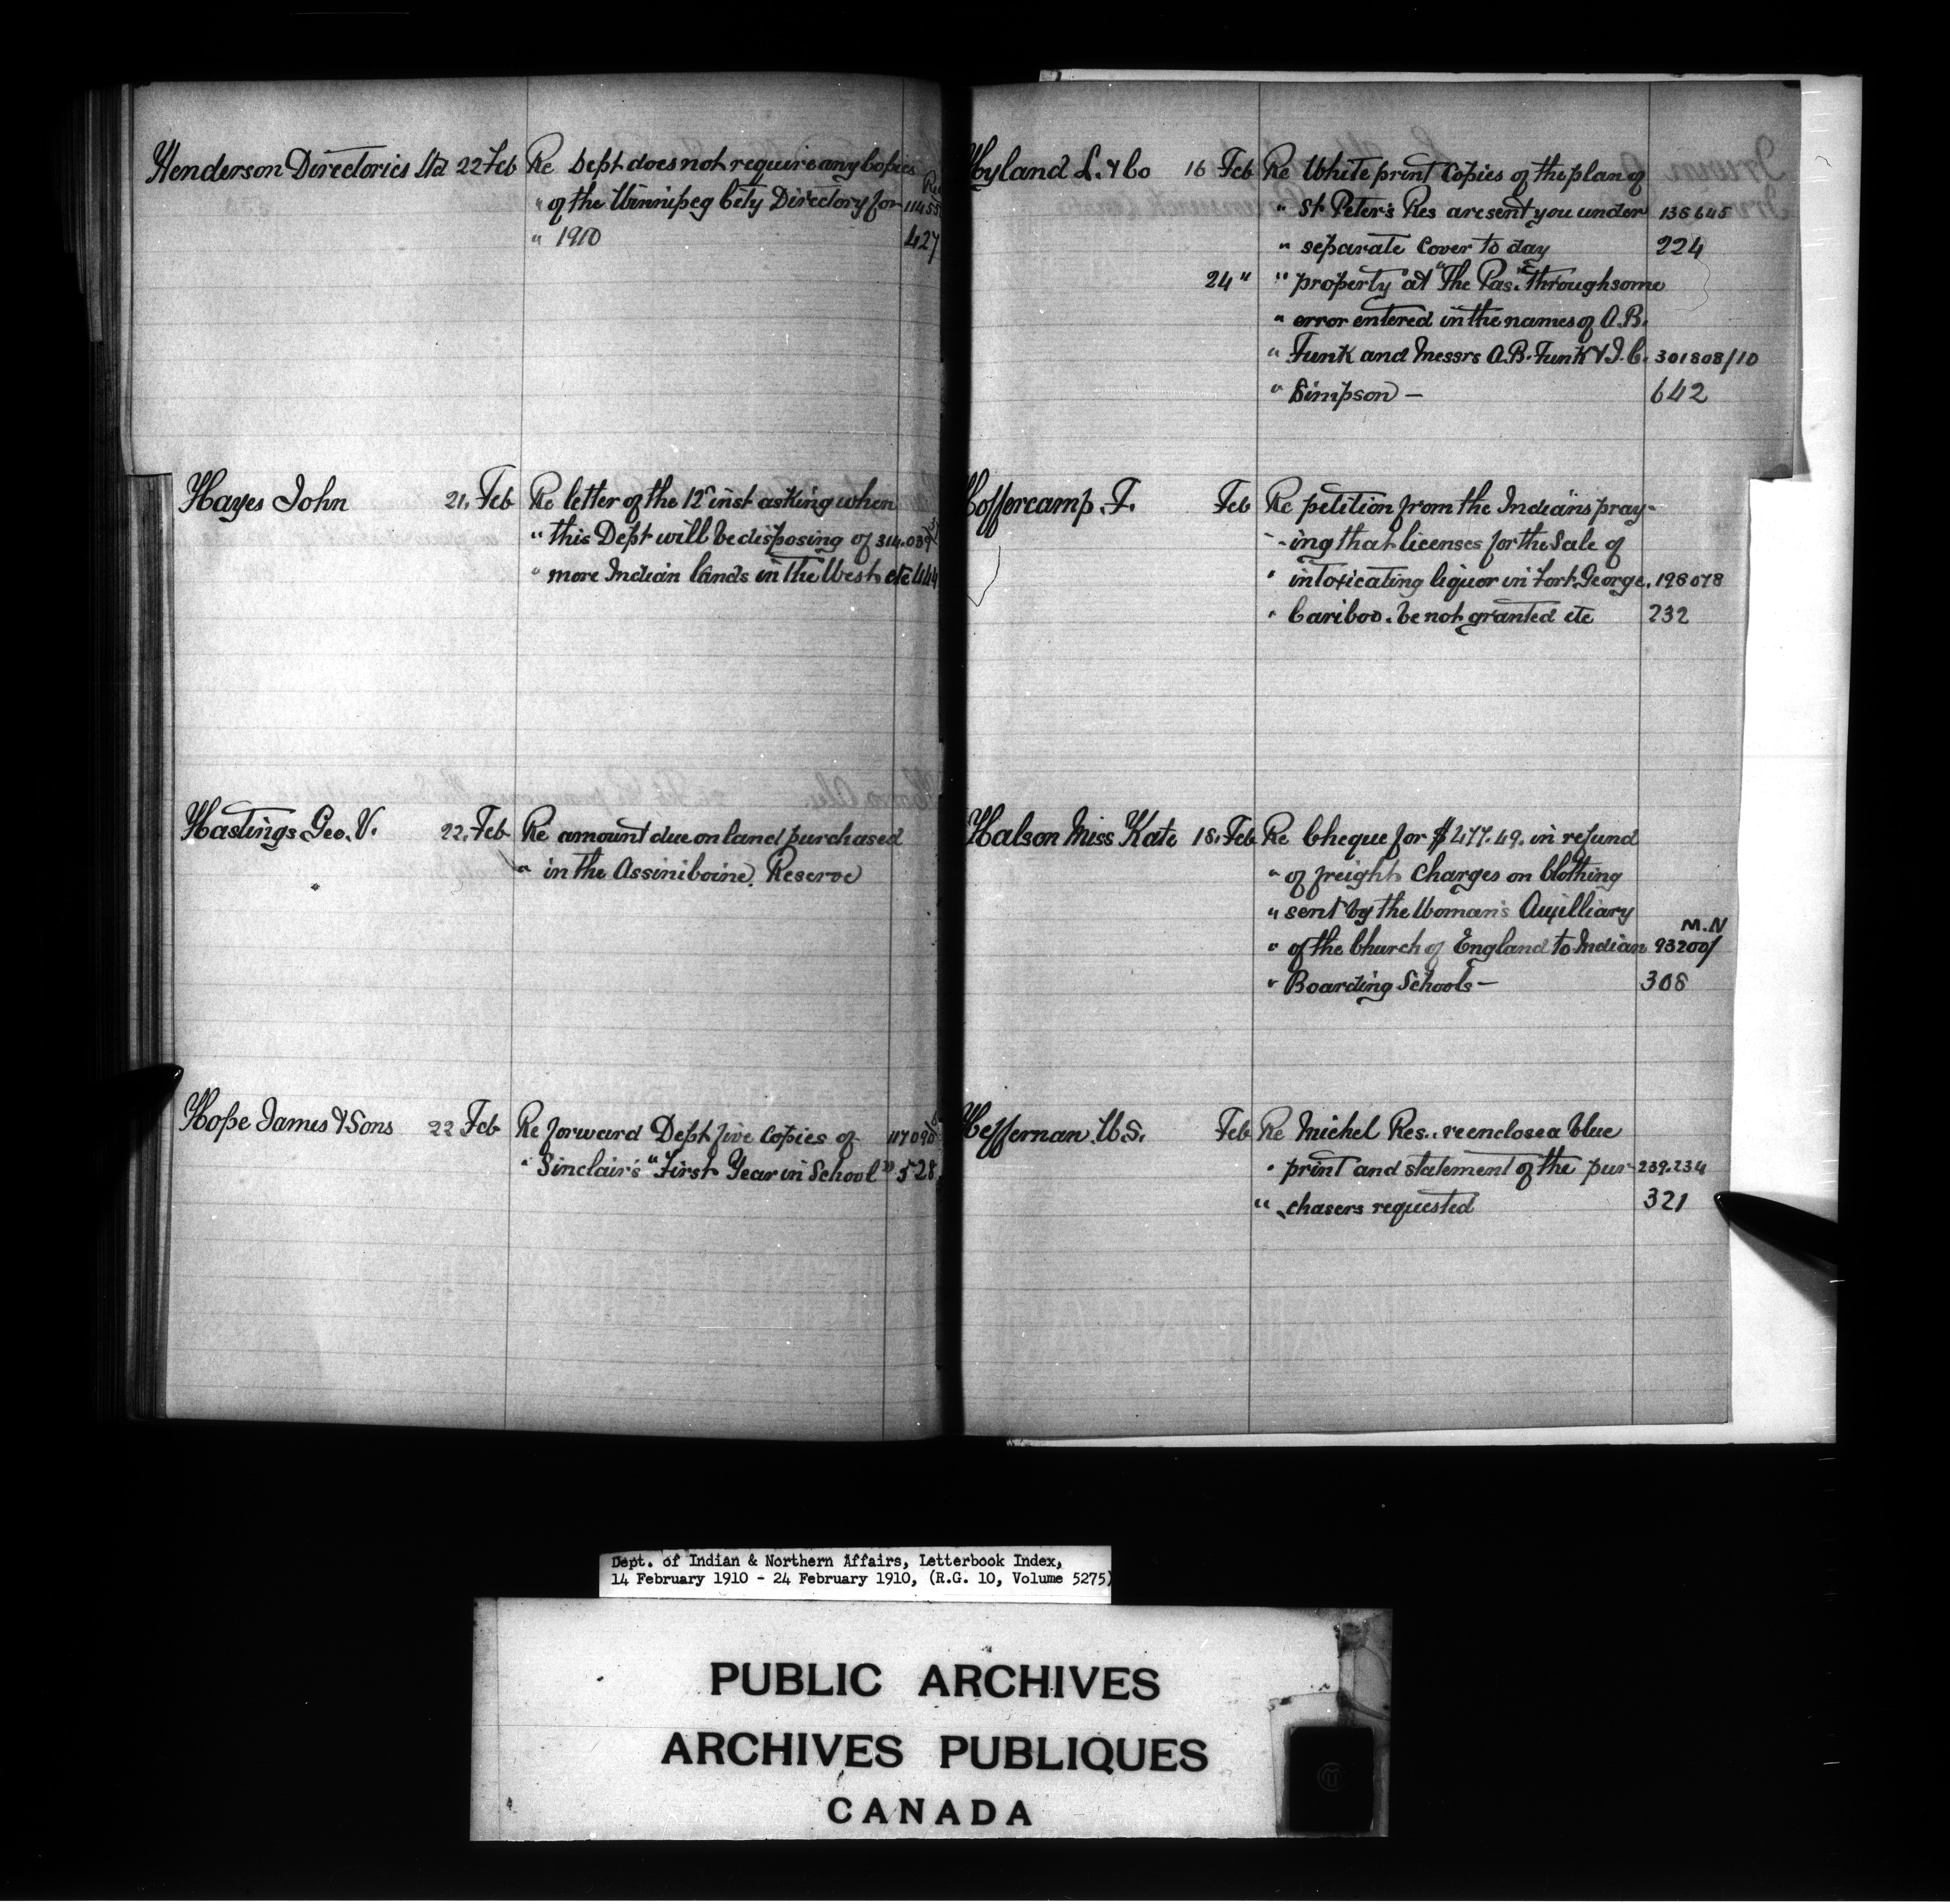 Henderson Directories Ltd 22 Feb Re Dept does not require any Copies
" of the Winnipeg City Directory for 11455
" 1910 427
Hayes John 21. Feb Re letter of the 12" inst asking when
" this Dept will be disposing of 314.039
" more Indian lands in the West etc 444
Hastings Geo. V. 22. Feb Re amount due on land purchased
" in the Assiniboine. Reserve
Hope James & Sons 22 Feb Re forward Dept five Copies of 117090
" Sinclair's "First Year in School" 528
Hyland L. & Co 16 Feb Re White print Copies of the plan of
" St Peter's Res are sent you under 138645
" separate Cover to day 224
24 " " property at "The Pas" through some
" error entered in the names of A.B.
" Funk and Messrs A.B. Funk & I.C. 301808/10
" Simpson — 642
Hoffercamp. F. Feb Re petition from the Indians pray-
-ing that licenses for the Sale of
" intoxicating liquor in Fort George, 198078
" Cariboo. be not granted etc 232
Halson Miss Kate 18. Feb Re Cheque for $477.49. in refund
" of freight Charges on Clothing
" sent by the Woman's Auxilliary
M.N
" of the Church of England to Indian 93200/
" Boarding Schools — 308
Heffernan. W.S. Feb Re Michel Res.. re enclose a blue
" print and statement of the pur- 239.234
" chasers requested 321
Dept. of Indian & Northern Affairs, Letterbook Index,
14 February 1910 - 24 February 1910, (R.G. 10, Volume 5275)
PUBLIC ARCHIVES
ARCHIVES PUBLIQUES
CANADA